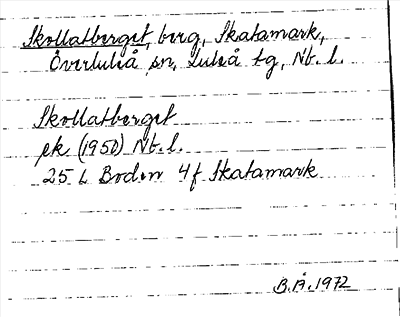 Skollatberget, berg, Skatamark,
Överluleå sn, Luleå tg, Nb. l.
Skollatberget
ek (1950) Nb. l.
25 L Boden 4f Skatamark
B.Å. 1972